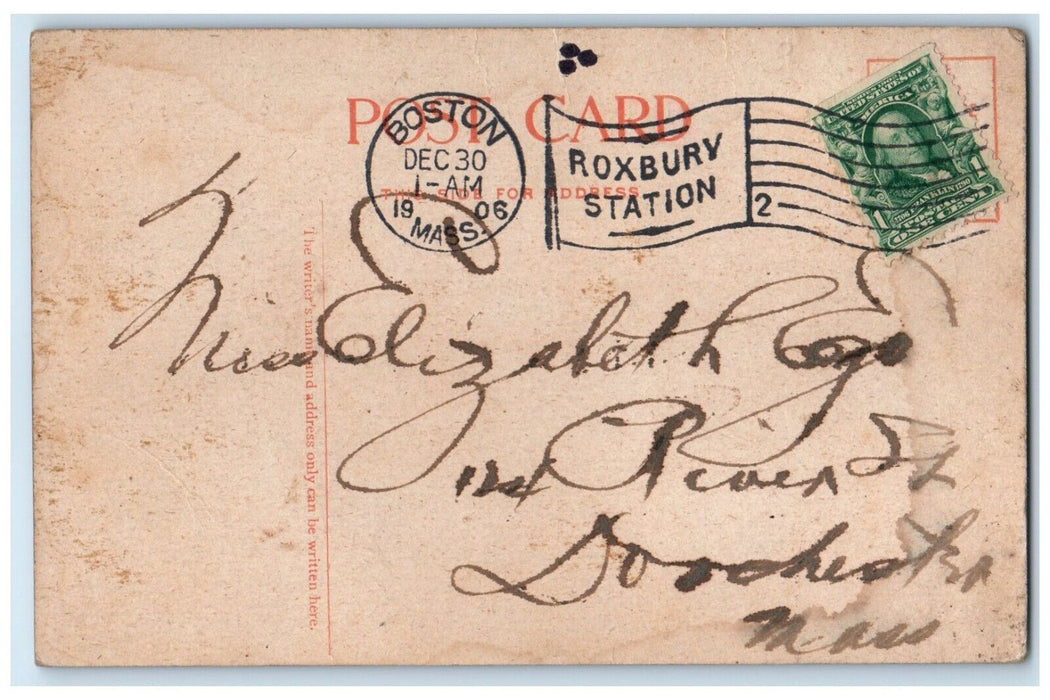 POST CARD
THIS SIDE FOR ADDRESS
BOSTON
DEC 30
1-AM
19 06
MASS.
ROXBURY
STATION
2
SERIES 1902
UNITED STATES OF
AMERICA
FRANKLIN
POSTAGE
1 ONE CENT 1
The writer's name and address only can be written here.
Miss Elizabeth
River St
Dorchester
Mass